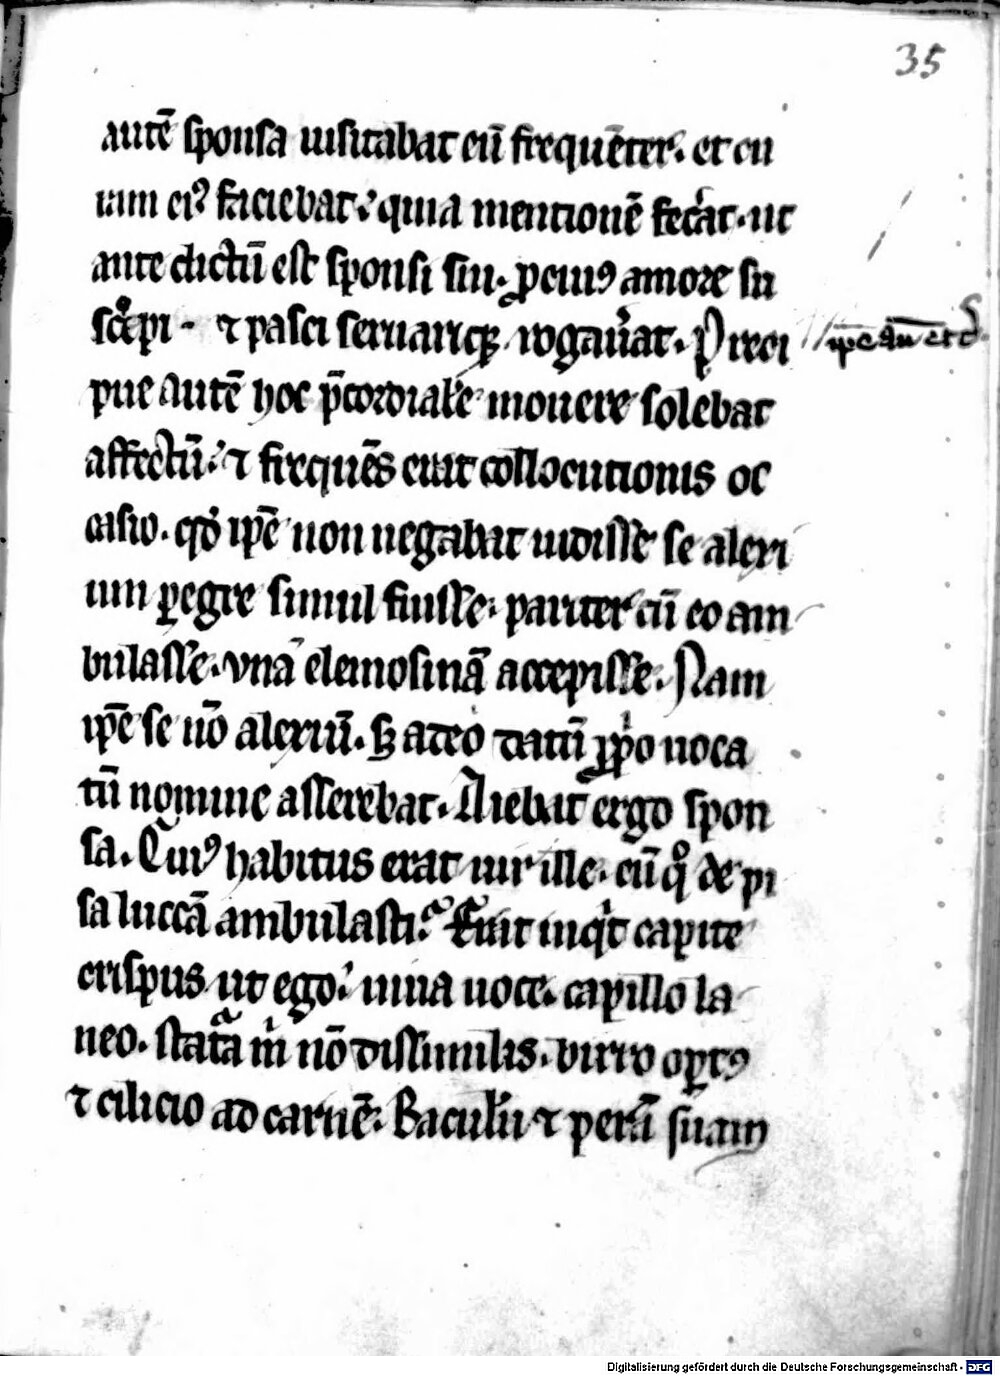 35
autē sponsa uisitabat eū frequēter. et cu
iam ei⁹ faciebat. quia mentionē fecat. ut
ante dictū est sponsi sui. ꝓ cuius amore su
scepi - ⁊ pasci seruariqꝫ rogauat. Preci
ipse
pue autē hoc p̄cordiale mouere solebat
affectū. ⁊ frequēs erat collocutionis oc
casio. qd ip̄e non negabat uidisse se alexi
um ꝑegre simul fuisse. pariter cū eo am
bulasse. vnā elemosinā accepisse. Nam
ip̄e se nō alexiū. sꝫ a deo datū ꝓprio uoca
tū nomine asserebat. Aiebat ergo spon
sa. Cui⁹ habitus erat uir ille. cū q̊ de pi
sa luccā ambulasti? Fuit inqt capite
crispus ut ego. uiua uoce. capillo la
neo. statᵃa m nō dissimilis. birro opert⁹
⁊ cilicio ad carnē. Baculū ⁊ perā suam
Digitalisierung gefördert durch die Deutsche Forschungsgemeinschaft - DFG